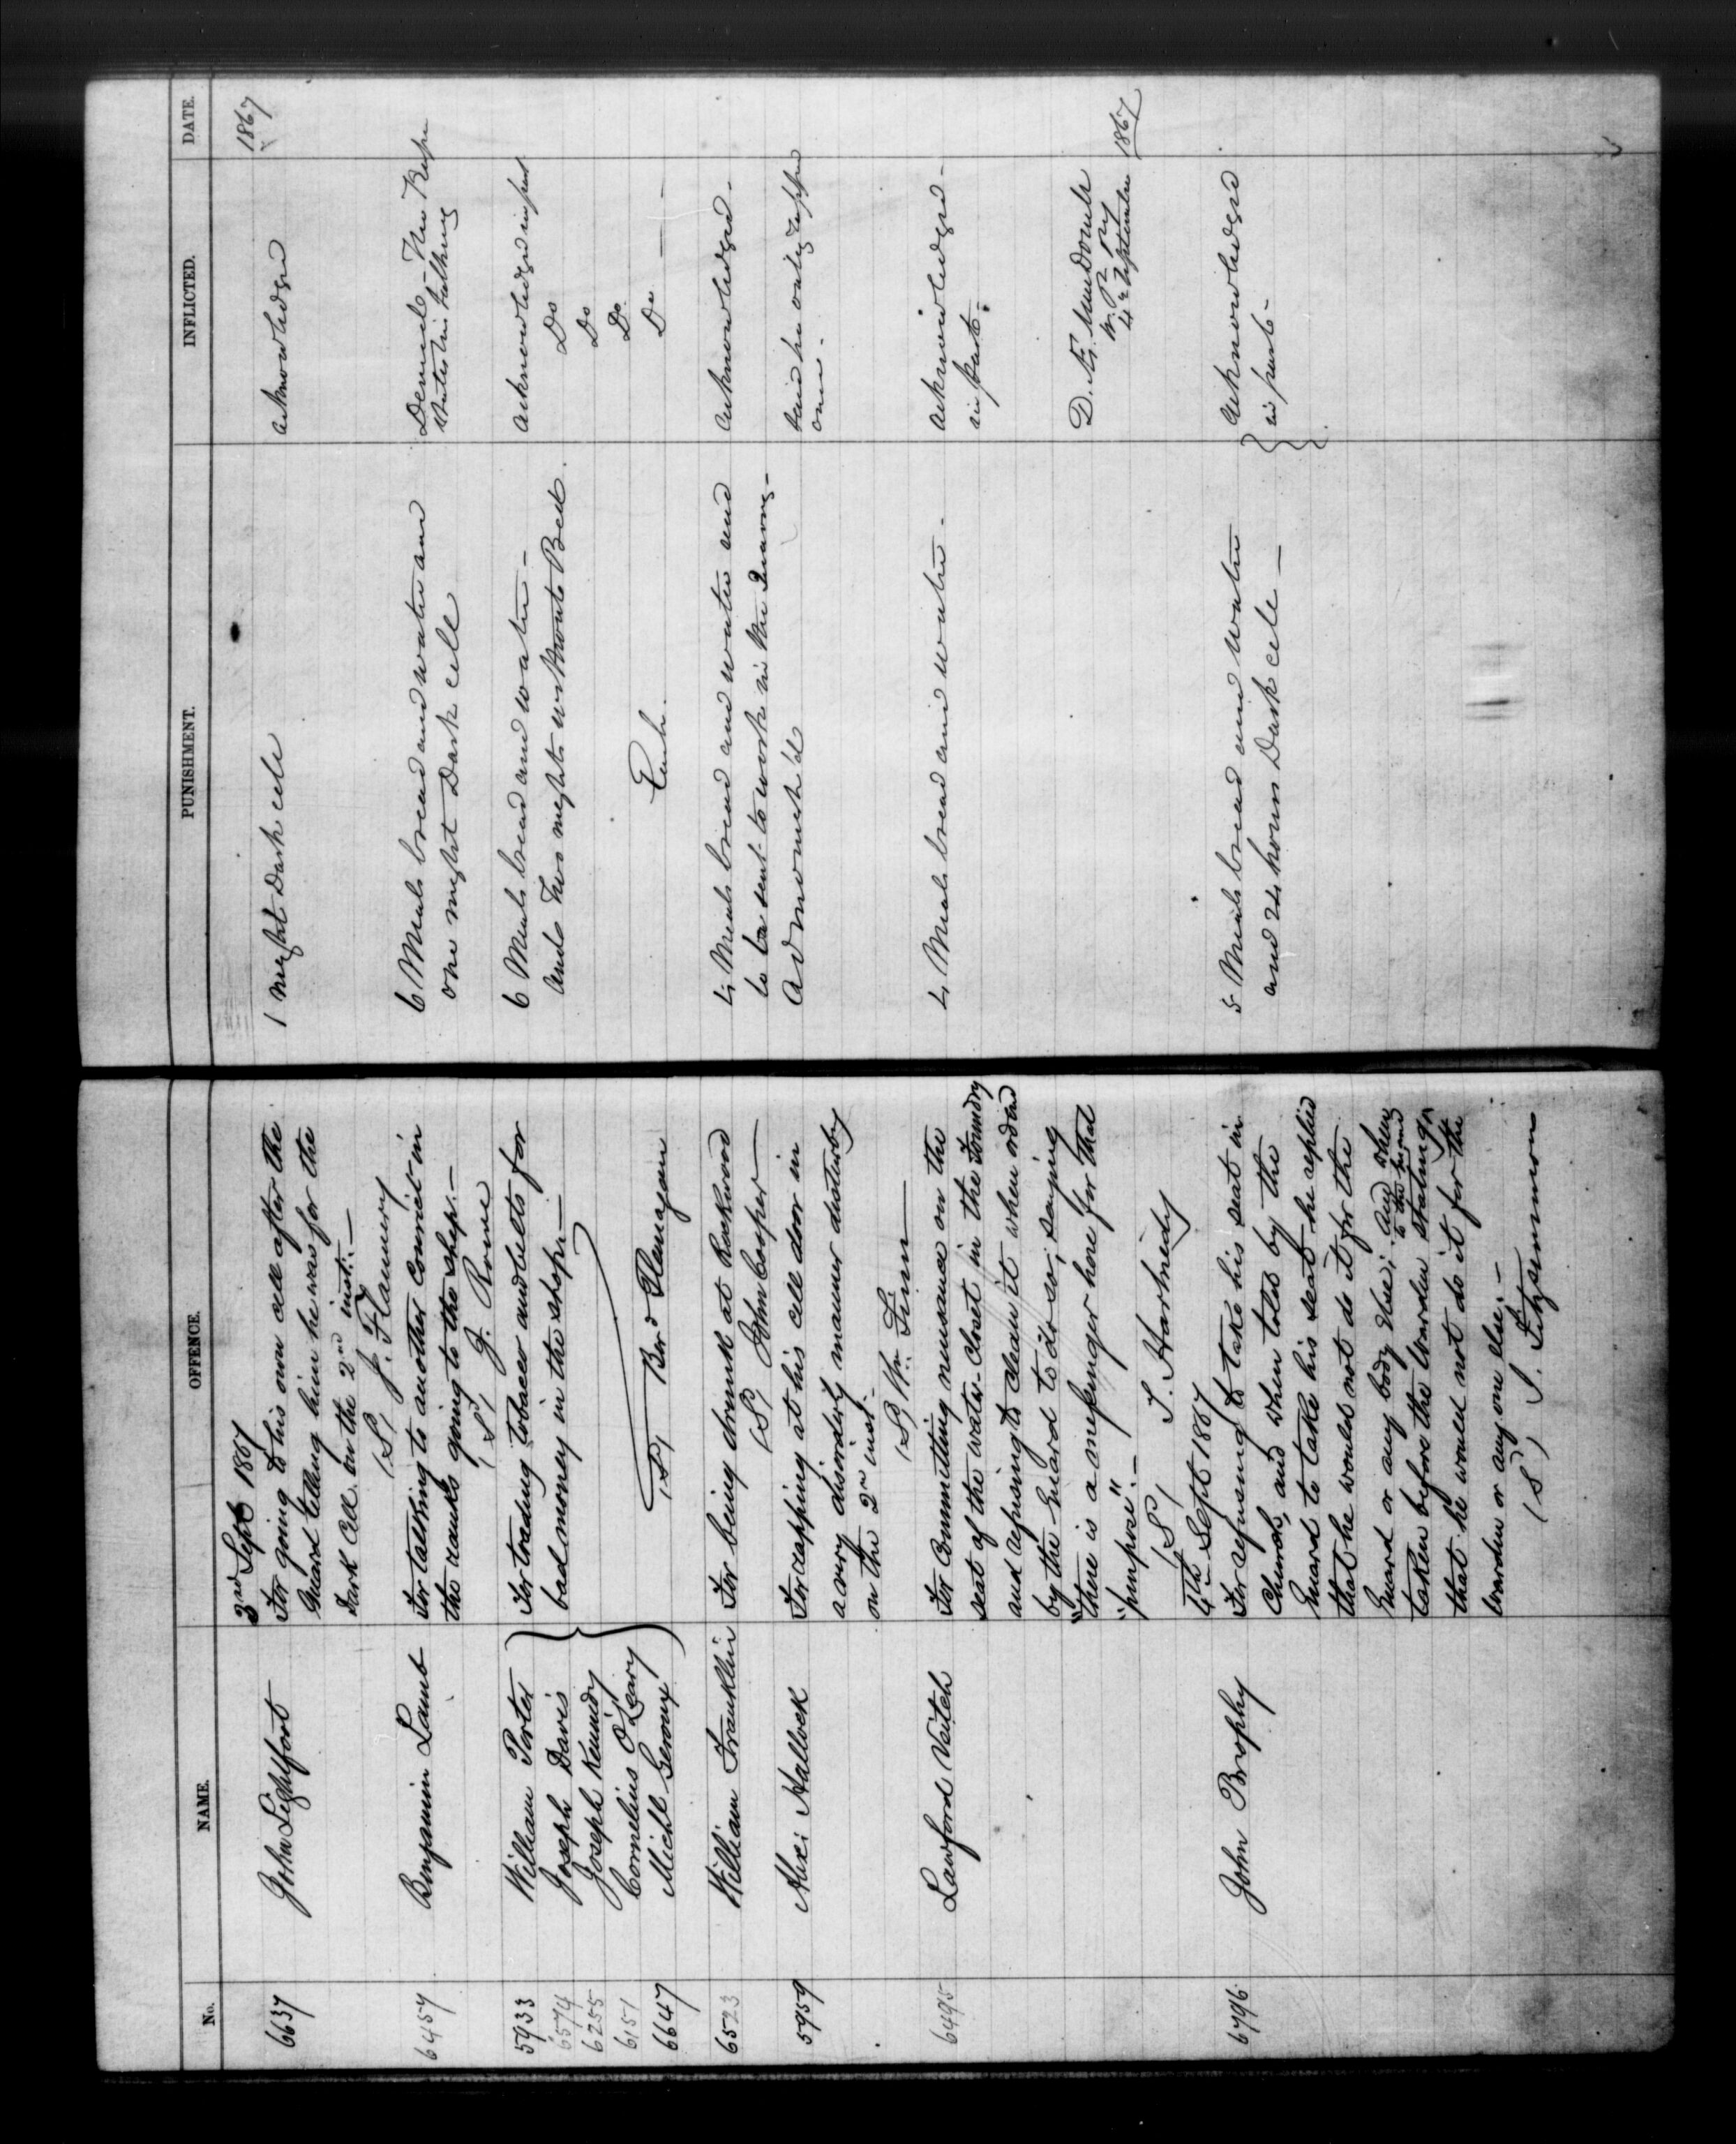 No. NAME. OFFENCE. PUNISHMENT. INFLICTED. DATE.
3rd Sept 1867
1867
6637 John Lightfoot For going to his own cell after the 1 night Dark cell acknowledged
Guard telling him he was for the
Dark Cell on the 2nd inst:—
(S) J. Flannery
6457 Benjamin Lamb For talking to another Convict in 6 Meals bread and water and Denied - The Keeper
the ranks going to the shop.— one night Dark cell states him talking
(S) J. Rowe
5933 William Porter For trading tobacco and belts for 6 Meals bread and water - acknowledged in part
6574 Joseph Davis bad money in the shops.— and Two nights without Bed. Do
6255 Joseph Kennedy Do
6151 Cornelius O'Leary Do
6647 Michl Geroux Each. Do
(S) Bernd Flanagan
6523 William Franklin For being drunk at Rockwood 4 Meals bread and water and acknowledged -
(S) John Cooper to be sent to work in the Quarry -
5959 Alexi Hallock For rapping at his cell door in Admonish'd said he only rapped
a very disorderly manner disturbing once -
on the 2nd inst.
(S) Wm. Finn
6495 Lawford Veitch For Committing nuisance on the 4 Meals bread and water - acknowledged -
seat of the water-closet in the Foundry in part -
and refusing to clean it when ordered
by the Guard to do so; saying
"there is a messenger here for that D. Æ. Macdonell
"purpose".— W. P. Py
(S) T. Hartnedy 4th September 1867
4th Sept 1867
6796 John Brophy For refusing to take his seat in 5 Meals bread and water acknowledged
Church, and when told by the and 24 hours Dark cell — in part -
Guard to take his seat he replied
that he would not do it for the
Guard or any body else; and when
taken before the Warden stating
that he would not do it for the
Warden or any one else.—
(S) J. Fitzsimmons